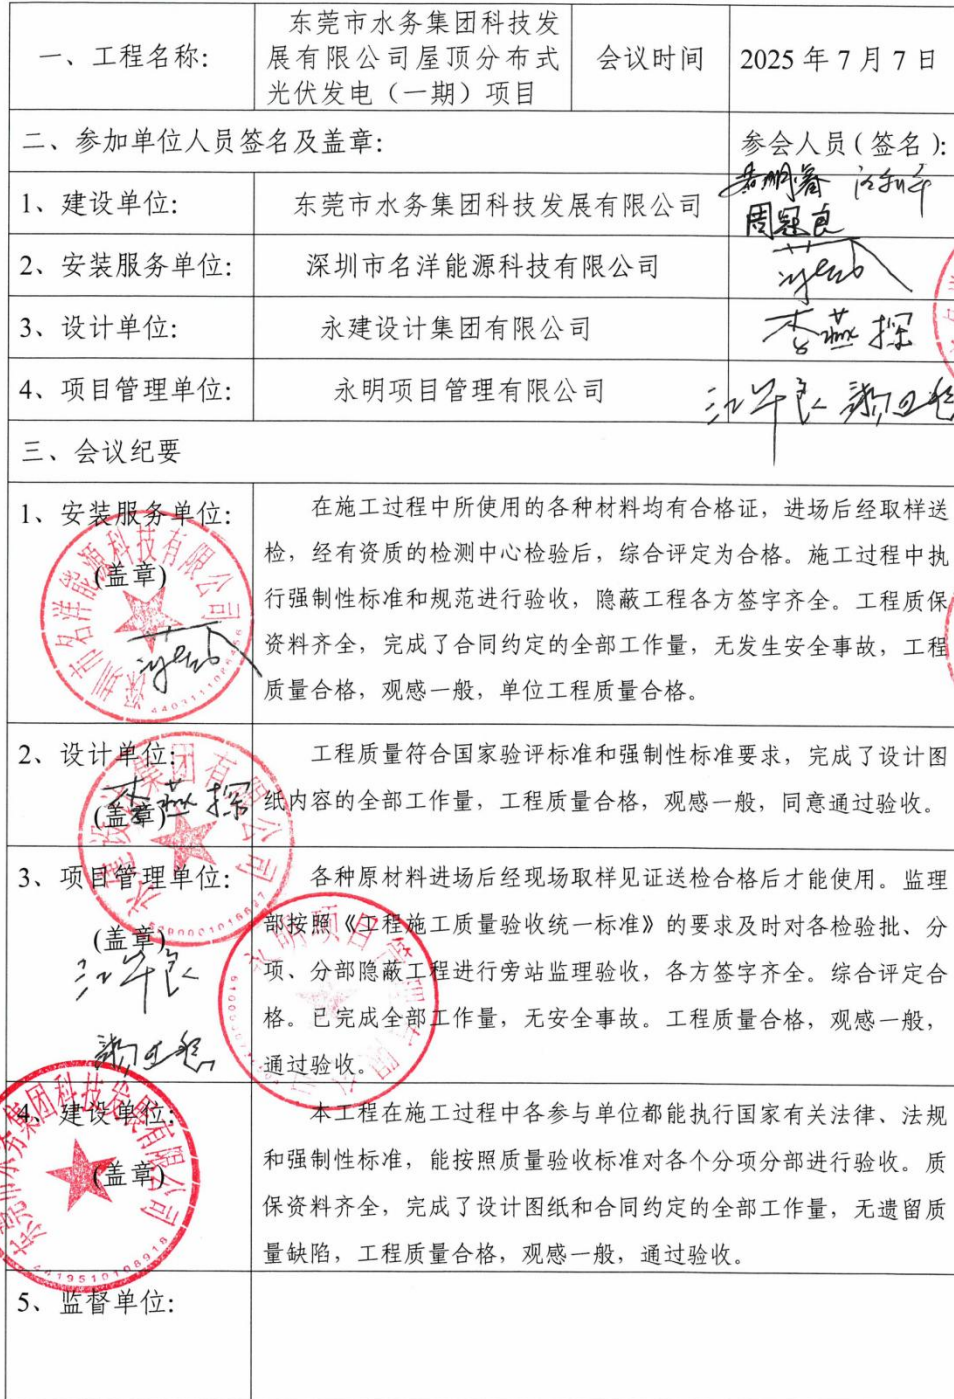 一、工程名称:
东莞市水务集团科技发
展有限公司屋顶分布式
光伏发电（一期）项目
会议时间
2025 年 7 月 7 日
二、参加单位人员签名及盖章:
参会人员（签名）:
1、建设单位:
东莞市水务集团科技发展有限公司
周冠良
2、安装服务单位:
深圳市名洋能源科技有限公司
3、设计单位:
永建设计集团有限公司
李燕探
4、项目管理单位:
永明项目管理有限公司
江华良
三、会议纪要
1、安装服务单位:
(盖章)
深圳市名洋能源科技有限公司
在施工过程中所使用的各种材料均有合格证，进场后经取样送
检，经有资质的检测中心检验后，综合评定为合格。施工过程中执
行强制性标准和规范进行验收，隐蔽工程各方签字齐全。工程质保
资料齐全，完成了合同约定的全部工作量，无发生安全事故，工程
质量合格，观感一般，单位工程质量合格。
2、设计单位:
(盖章)
李燕探
永建设计集团有限公司
工程质量符合国家验评标准和强制性标准要求，完成了设计图
纸内容的全部工作量，工程质量合格，观感一般，同意通过验收。
3、项目管理单位:
(盖章)
江华良
永明项目管理有限公司
各种原材料进场后经现场取样见证送检合格后才能使用。监理
部按照《工程施工质量验收统一标准》的要求及时对各检验批、分
项、分部隐蔽工程进行旁站监理验收，各方签字齐全。综合评定合
格。已完成全部工作量，无安全事故。工程质量合格，观感一般，
通过验收。
4、建设单位:
(盖章)
东莞市水务集团科技发展有限公司
本工程在施工过程中各参与单位都能执行国家有关法律、法规
和强制性标准，能按照质量验收标准对各个分项分部进行验收。质
保资料齐全，完成了设计图纸和合同约定的全部工作量，无遗留质
量缺陷，工程质量合格，观感一般，通过验收。
5、监督单位: